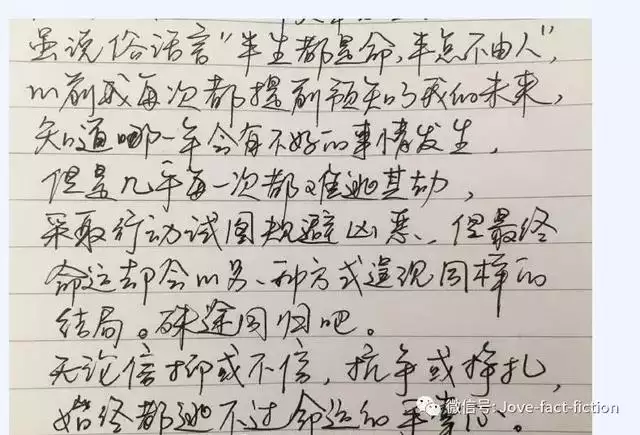 虽说俗话言“半生都是命，半点不由人”，
以前我每次都提前预知了我的未来，
知道哪一年会有不好的事情发生，
但是几乎每一次都难逃其劫，
采取行动试图规避凶恶、但最终
命运却会以另一种方式呈现同样的
结局。殊途同归吧。
无论信抑或不信，抗争或挣扎，
始终都逃不过命运的手掌心。
微信号: Jove-fact-fiction